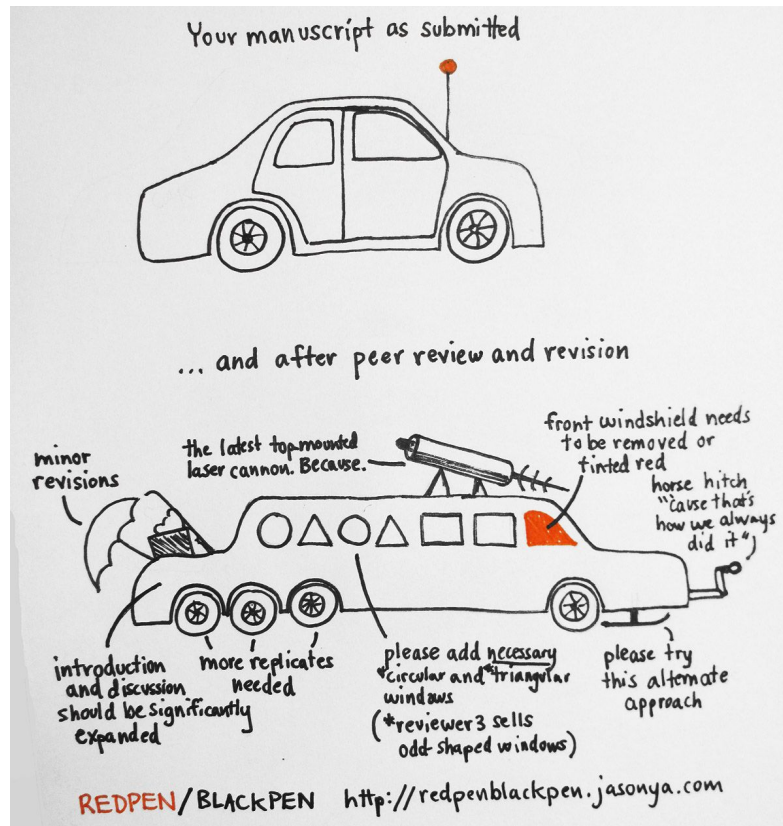 Your manuscript as submitted
... and after peer review and revision
minor
revisions
the latest top mounted
laser cannon. Because.
front windshield needs
to be removed or
tinted red
horse hitch
"cause that's
how we always
did it"
introduction
and discussion
should be significantly
expanded
more replicates
needed
please add necessary
*circular and *triangular
windows
(*reviewer 3 sells
odd shaped windows)
please try
this alternate
approach
REDPEN/BLACKPEN http://redpenblackpen.jasonya.com